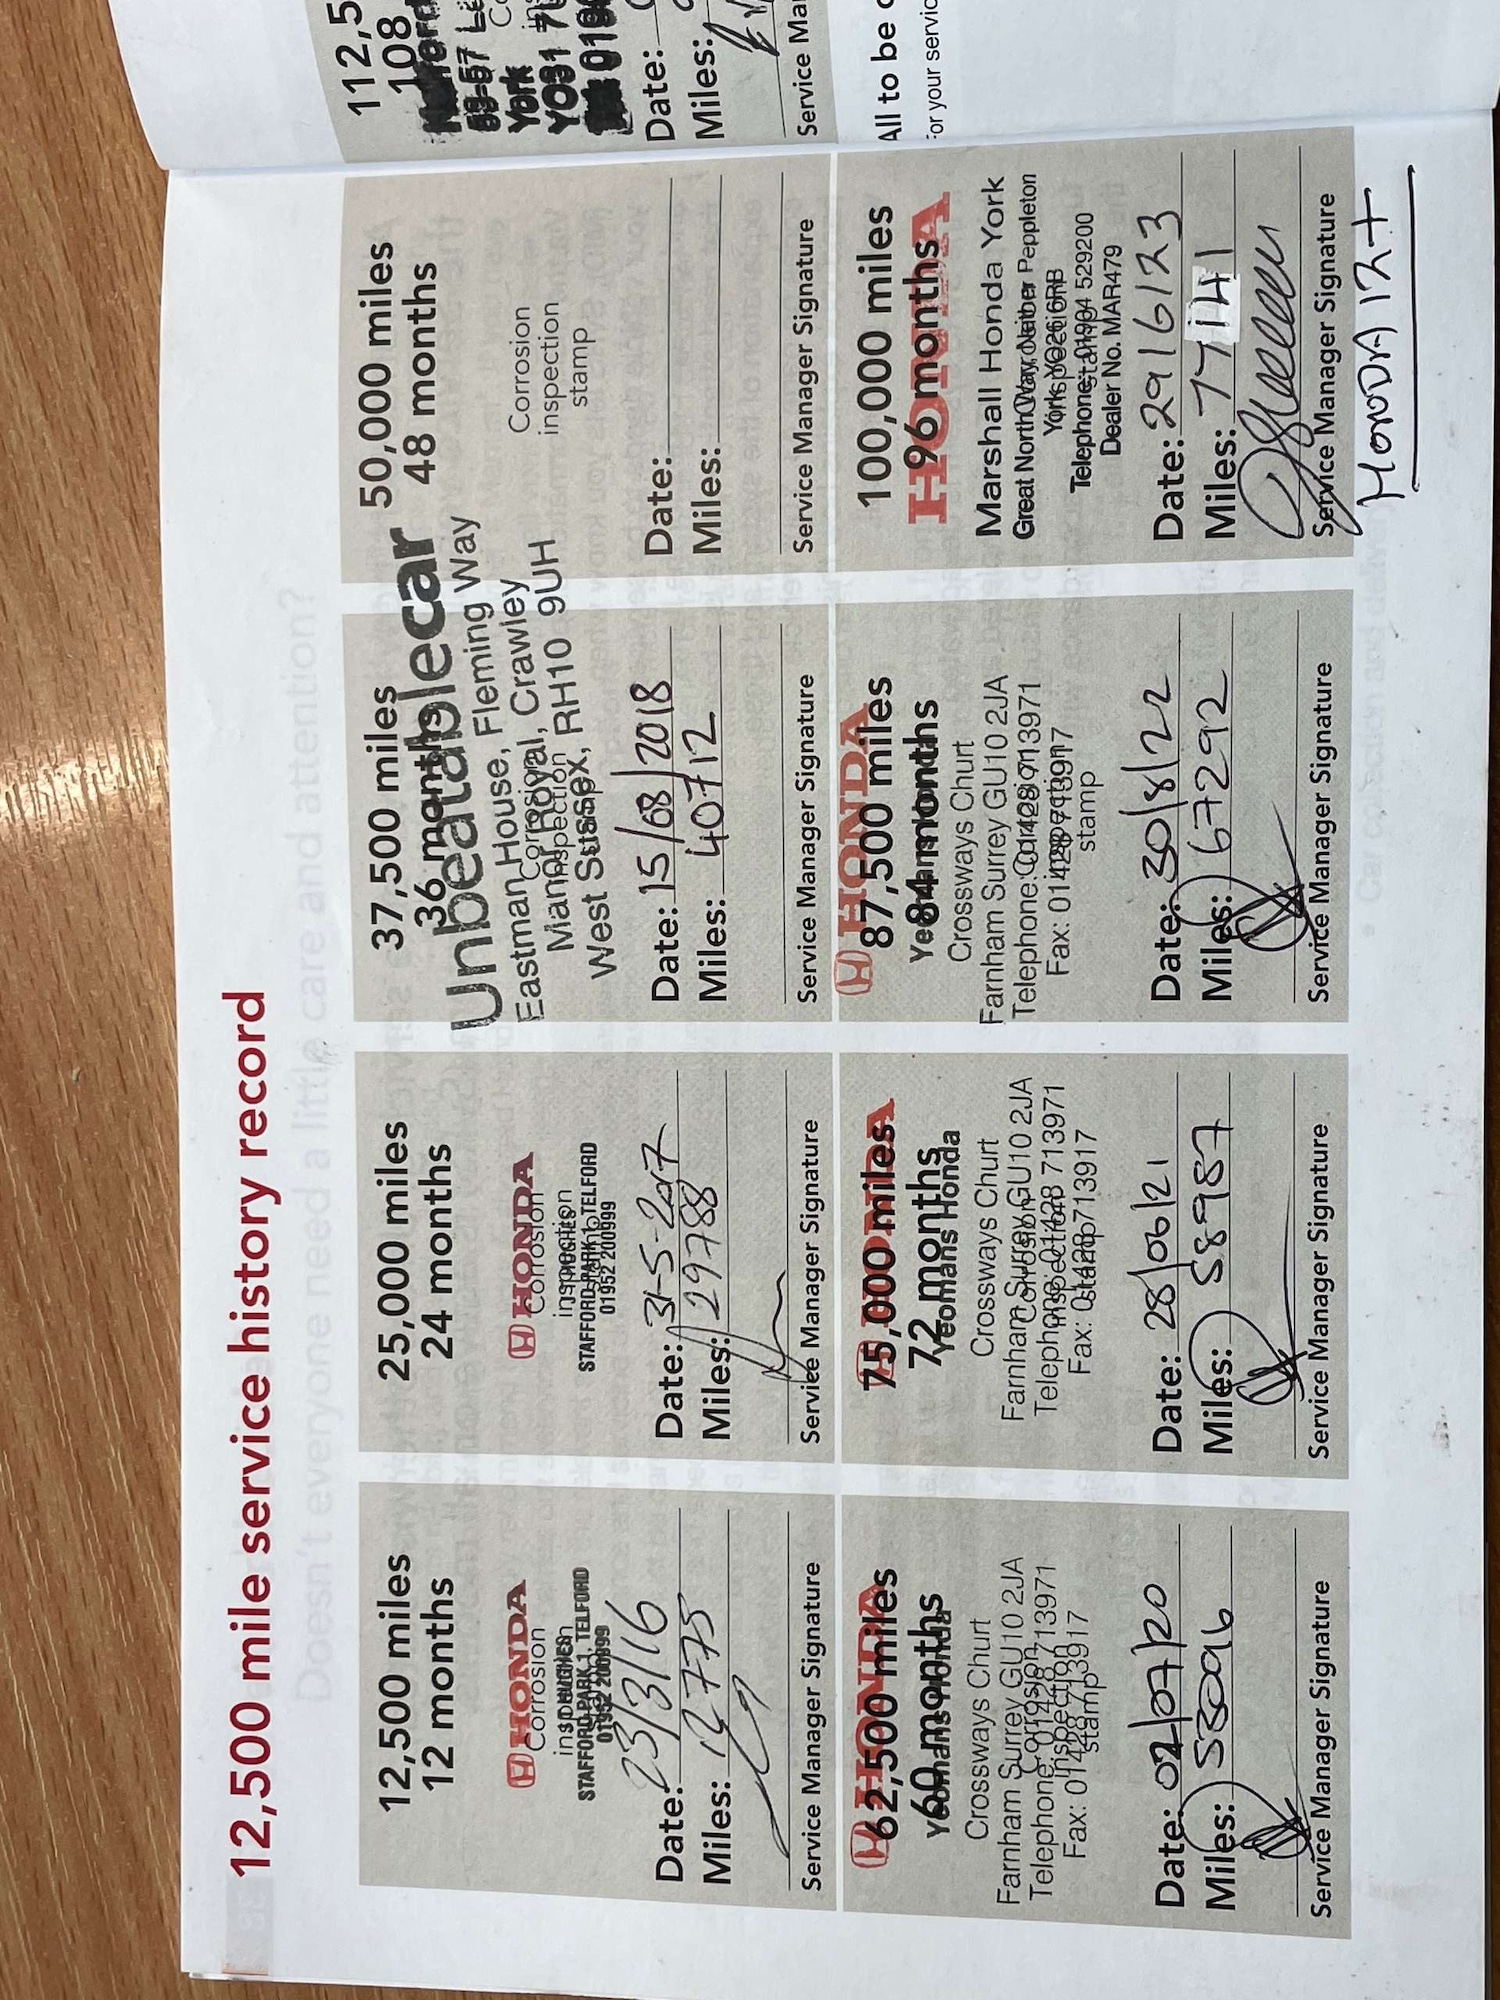 12,500 mile service history record
12,500 miles
12 months
HONDA
Corrosion
inspection
STAFFORD PARK 1, TELFORD
01952 200999
Date: 23/3/16
Miles: 12775
Service Manager Signature
25,000 miles
24 months
HONDA
Corrosion
inspection
STAFFORD PARK 1, TELFORD
01952 200999
Date: 31-5-2017
Miles: 29788
Service Manager Signature
37,500 miles
36 months
Unbeatablecar
Eastman House, Fleming Way
Corrosion
Manor Royal, Crawley
inspection
West Sussex, RH10 9UH
Date: 15/08/2018
Miles: 40712
Service Manager Signature
50,000 miles
48 months
Corrosion
inspection
stamp
Date:
Miles:
Service Manager Signature
62,500 miles
HONDA
60 months
Yeomans Honda
Crossways Churt
Farnham Surrey GU10 2JA
Corrosion
Telephone: 01428 713971
inspection
Fax: 01428 713917
stamp
Date: 02/07/20
Miles: 53096
Service Manager Signature
75,000 miles
HONDA
72 months
Yeomans Honda
Crossways Churt
Farnham Surrey GU10 2JA
Corrosion
Telephone: 01428 713971
inspection
Fax: 01428 713917
stamp
Date: 28/06/21
Miles: 58987
Service Manager Signature
HONDA
87,500 miles
84 months
Yeomans Honda
Crossways Churt
Farnham Surrey GU10 2JA
Telephone: 01428 713971
Corrosion
Fax: 01428 713917
inspection
stamp
Date: 30/8/22
Miles: 67292
Service Manager Signature
100,000 miles
96 months
HONDA
Marshall Honda York
Great North Way, Nether Poppleton
Corrosion
York YO26 6RB
inspection
Telephone: 01904 529200
stamp
Dealer No. MAR479
Date: 29/6/23
Miles: 77141
Service Manager Signature
HONDA 12+
112,5
108
York
YO31 7
Date:
Miles:
Service Ma
All to be
For your servic